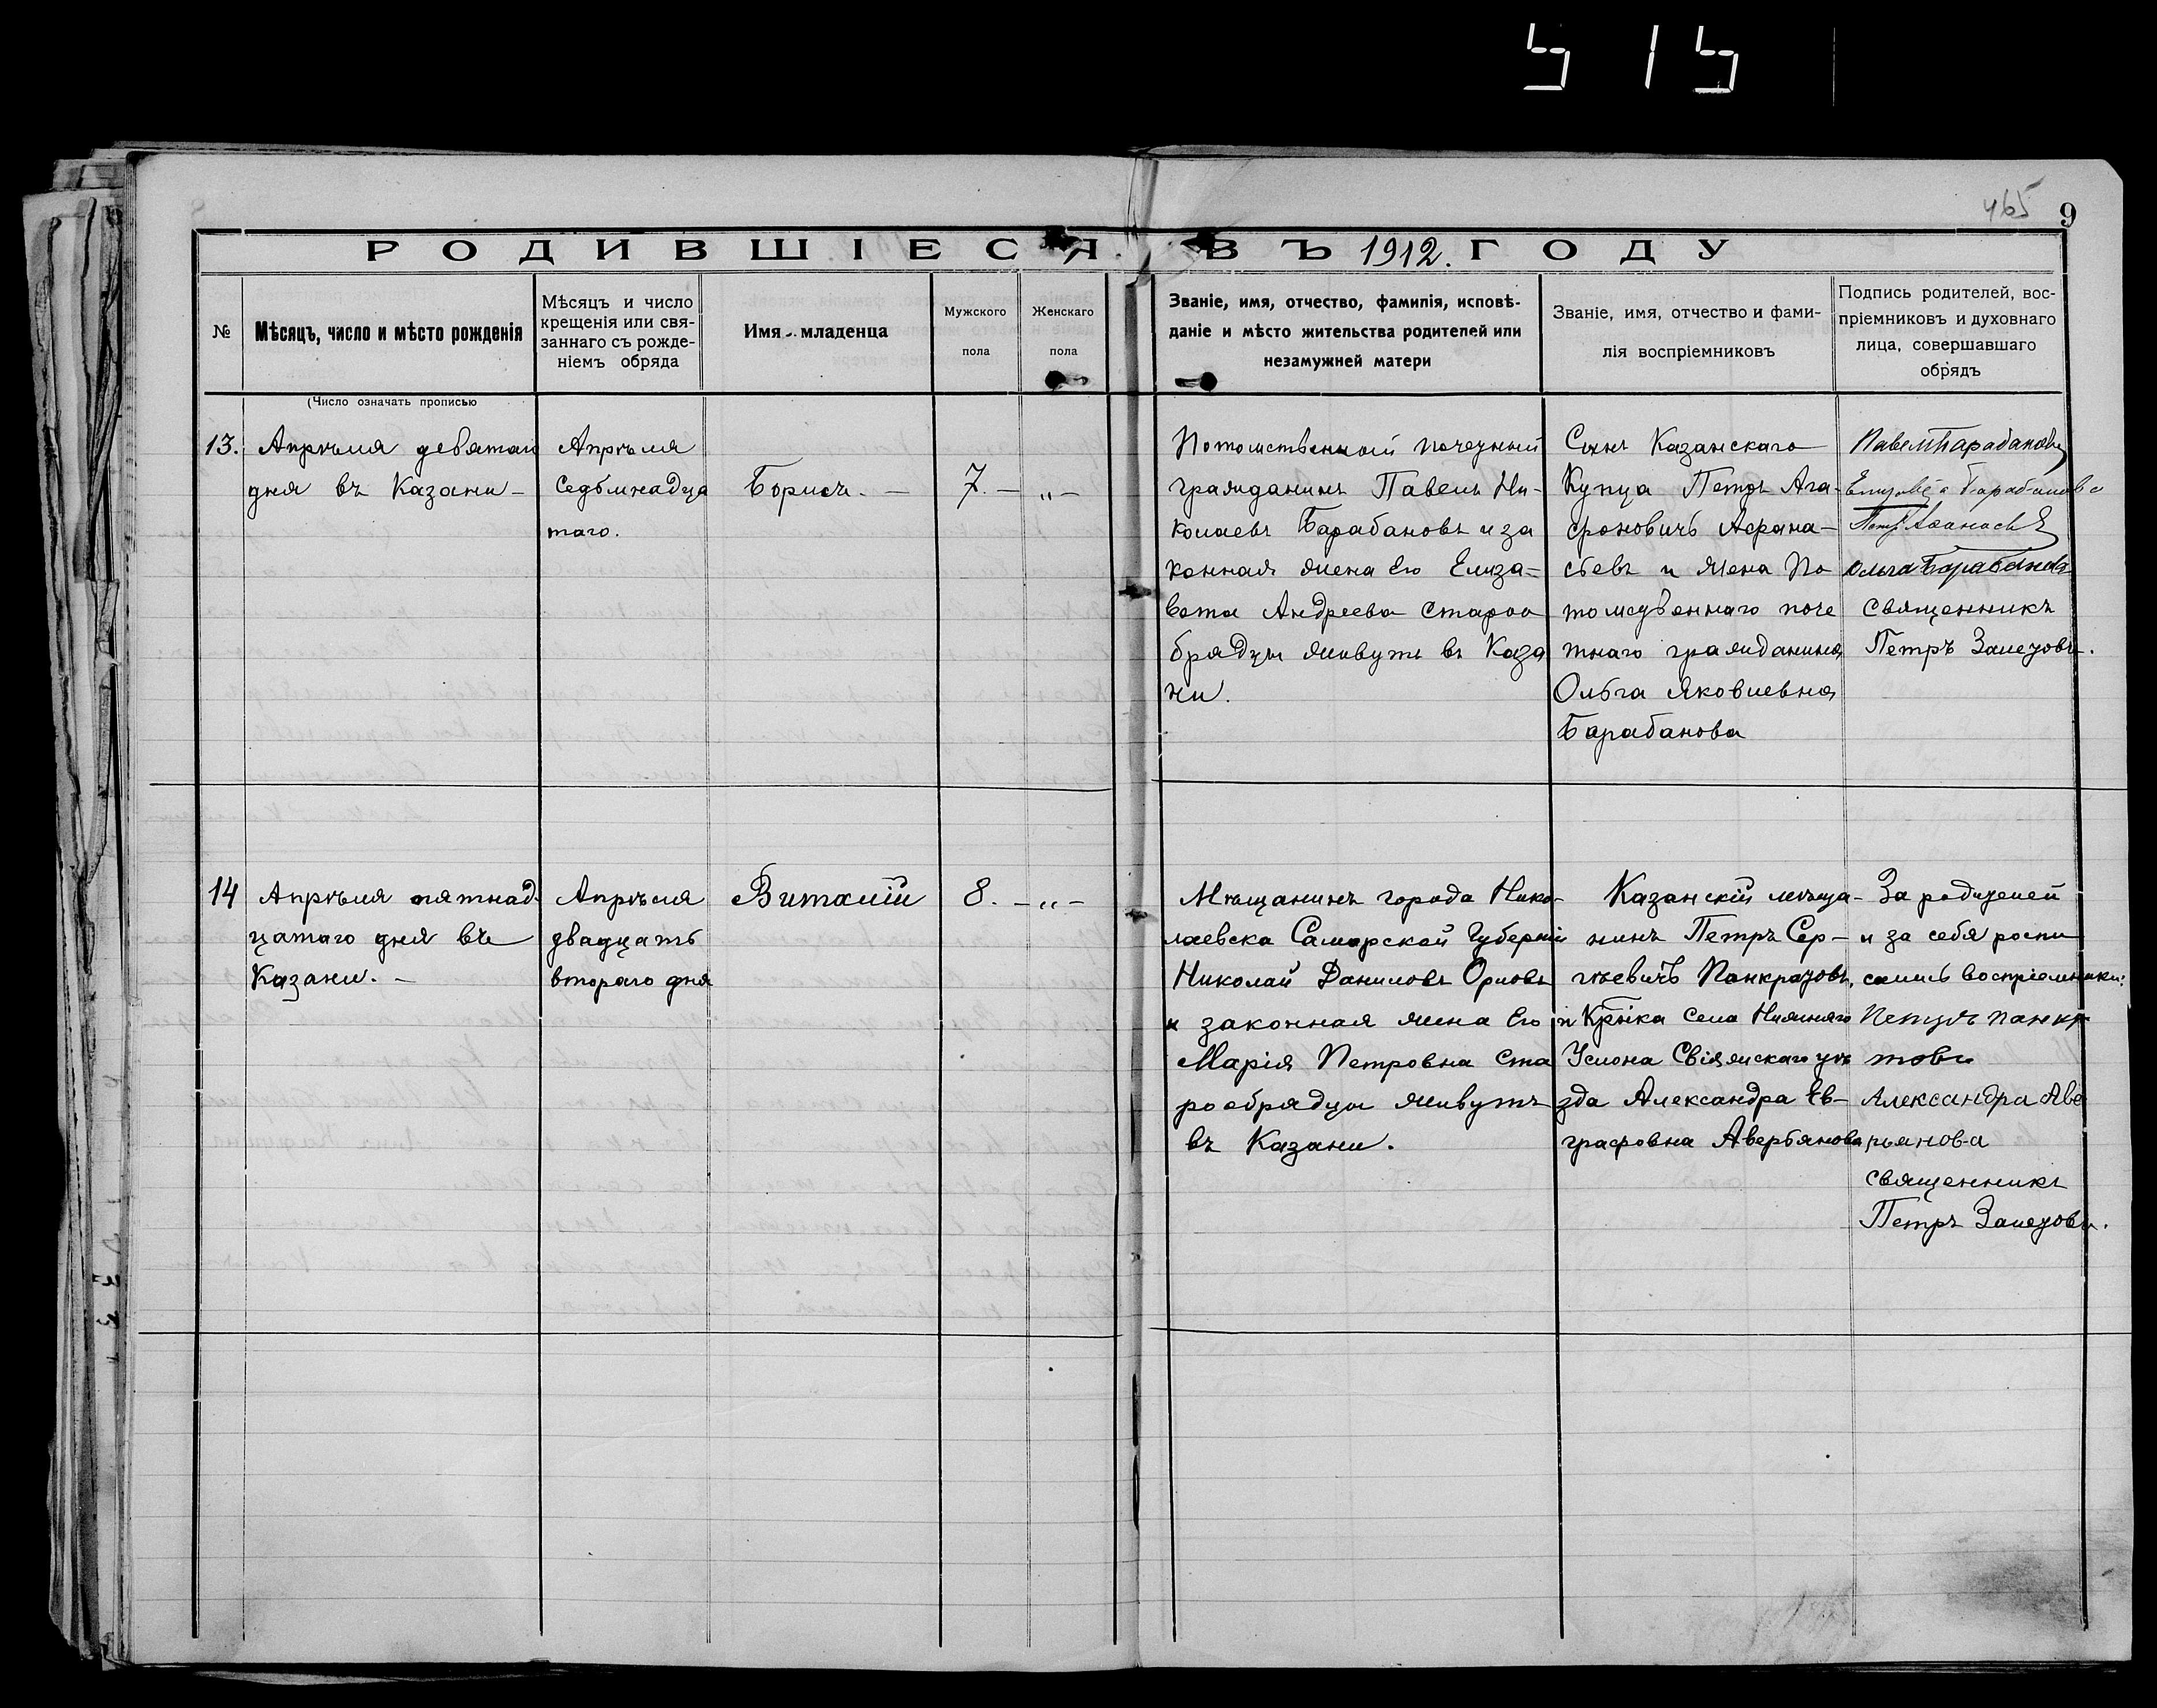 515
465 9
РОДИВШІЕСЯ ВЪ 1912. ГОДУ
№
Мѣсяцъ, число и мѣсто рожденія
Мѣсяцъ и число
крещенія или свя-
заннаго съ рожде-
ніемъ обряда
Имя младенца
Мужского
пола
Женскаго
пола
Званіе, имя, отчество, фамилія, исповѣ-
даніе и мѣсто жительства родителей или
незамужней матери
Званіе, имя, отчество и фами-
лія воспріемниковъ
Подпись родителей, вос-
пріемниковъ и духовнаго
лица, совершавшаго
обрядъ
(Число означать прописью
13.
Апрѣля девятаго
дня въ Казани-
Апрѣля
седьмнадца
таго.
Борисъ. -
7. -
„ -
Потомственный почетный
гражданинъ Павелъ Ни-
колаевъ Барабановъ и за
конная жена его Елиза-
вета Андреева староо
брядцы живутъ въ Каза
ни.
Сынъ Казанскаго
Купца Петръ Ага-
фоновичъ Афана-
сьевъ и жена По
томственнаго поче
тнаго гражданина
Ольга Яковлевна
Барабанова
Павелъ Барабановъ
Елизавета Барабанова
Петръ Афанасьевъ
Ольга Барабанова
священникъ
Петръ Залетовъ.
14
Апрѣля пятнад-
цатаго дня въ
Казани. -
Апрѣля
двадцать
второго дня
Виталій
8. -
„ -
Мѣщанинъ города Нико-
лаевска Самарской Губерніи
Николай Даниловъ Орловъ
и законная жена его
Марія Петровна ста
рообрядцы живутъ
въ Казани.
Казанскій мѣща-
нинъ Петръ Сер-
гѣевичъ Панкратовъ,
и Кр-нка села Нижняго
Услона Свіяжскаго уѣ
зда Александра Ев-
графовна Аверьянова
За родителей
и за себя роспи
сались воспріемники:
Петръ Панкр
товъ
Александра Аве
рьянова
священникъ
Петръ Залетовъ.